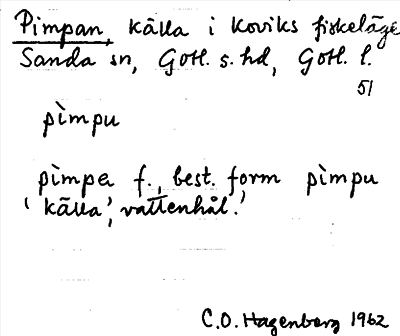 Pimpan, källa i Koviks fiskeläge
Sanda sn, Gotl. s. hd, Gotl. l.
51
pìmpu
pìmpa f., best. form pìmpu
'källa', vattenhål.'
C.O. Hagenberg 1962